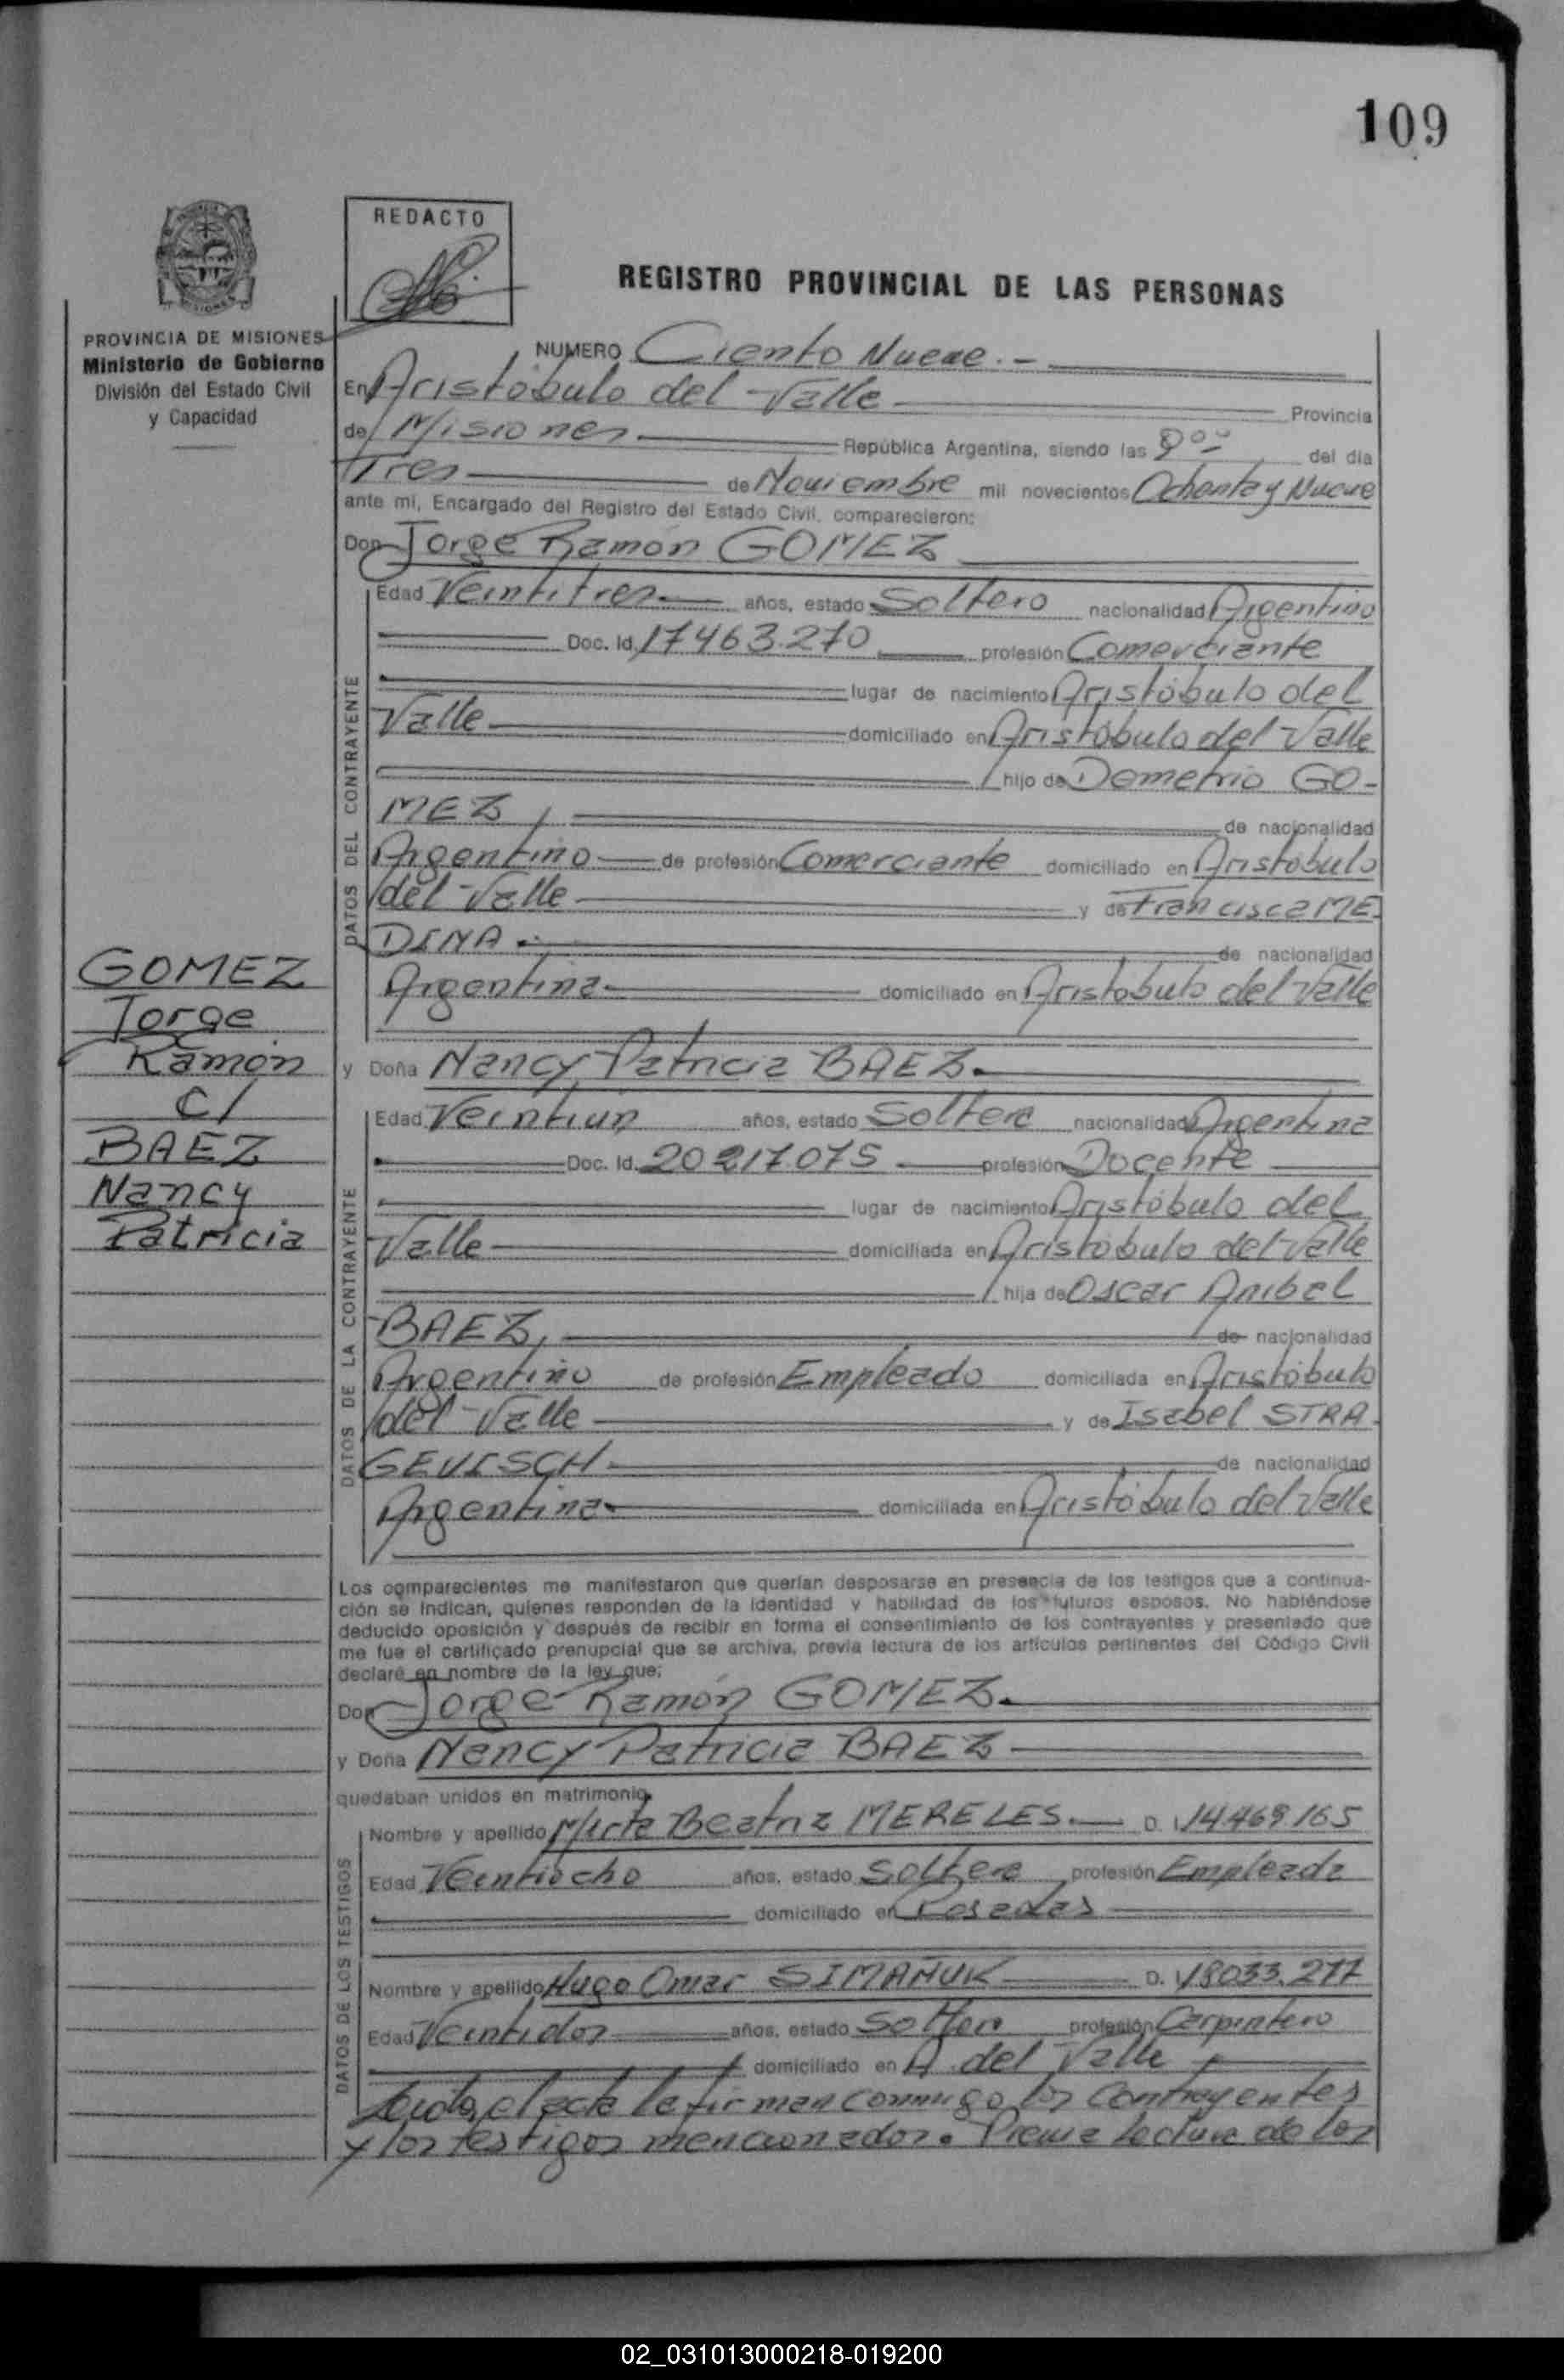 109
REDACTO
REGISTRO PROVINCIAL DE LAS PERSONAS
PROVINCIA DE MISIONES
Ministerio de Gobierno
División del Estado Civil
y Capacidad
NUMERO Ciento Nueve.-
En Aristóbulo del Valle Provincia
de Misiones República Argentina, siendo las 8°° del día
Tres de Noviembre mil novecientos Ochenta y Nueve
ante mi, Encargado del Registro del Estado Civil, comparecieron:
Don Jorge Ramón GOMEZ
DATOS DEL CONTRAYENTE
Edad Veintitres años, estado Soltero nacionalidad Argentino
Doc. Id. 17463.270 profesión Comerciante
lugar de nacimiento Aristóbulo del
Valle domiciliado en Aristóbulo del Valle
hijo de Demetrio GO-
MEZ, de nacionalidad
Argentino de profesión Comerciante domiciliado en Aristóbulo
del Valle y de Francisca ME-
DINA. de nacionalidad
Argentina domiciliado en Aristóbulo del Valle
GOMEZ
Jorge
Ramón
C/
BAEZ
Nancy
Patricia
y Doña Nancy Patricia BAEZ.
DATOS DE LA CONTRAYENTE
Edad Veintiun años, estado Soltera nacionalidad Argentina
Doc. Id. 20217075 profesión Docente
lugar de nacimiento Aristóbulo del
Valle domiciliada en Aristóbulo del Valle
hija de Oscar Anibal
BAEZ, de nacionalidad
Argentino de profesión Empleado domiciliada en Aristóbulo
del Valle y de Isabel STRA-
GEVISCH. de nacionalidad
Argentina domiciliada en Aristóbulo del Valle
Los comparecientes me manifestaron que querían desposarse en presencia de los testigos que a continua-
ción se indican, quienes responden de la identidad y habilidad de los futuros esposos. No habiéndose
deducido oposición y después de recibir en forma el consentimiento de los contrayentes y presentado que
me fue el certificado prenupcial que se archiva, previa lectura de los artículos pertinentes del Código Civil
declaré en nombre de la ley que:
Don Jorge Ramón GOMEZ.
y Doña Nancy Patricia BAEZ
quedaban unidos en matrimonio.
DATOS DE LOS TESTIGOS
Nombre y apellido Mirta Beatriz MERELES. D. 14.469.165
Edad Veintiocho años, estado Soltera profesión Empleada
domiciliado en Posadas
Nombre y apellido Hugo Omar SIMAÑUK D. 18033.277
Edad Veintidos años, estado Soltero profesión Carpintero
domiciliado en A. del Valle
Leida el acta la firman conmigo los contrayentes
y los testigos mencionados. Previa lectura de los
02_031013000218-019200